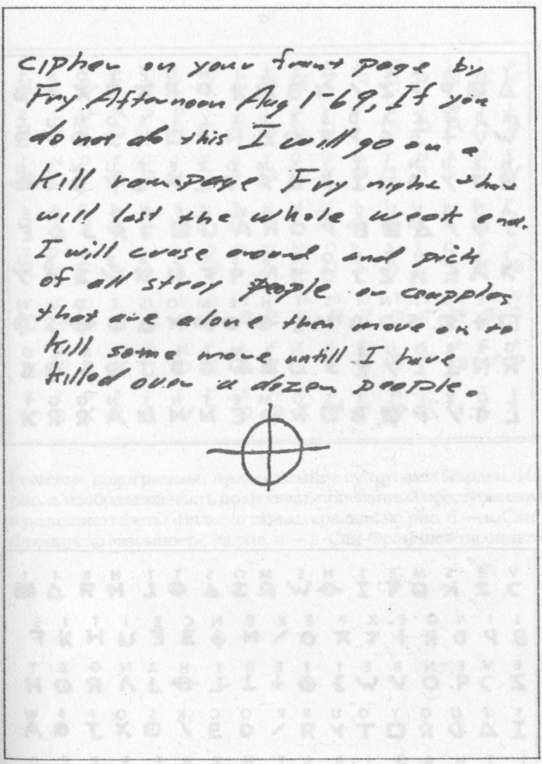 cipher on your front page by
Fry Afternoon Aug 1-69, If you
do not do this I will go on a
kill rampage Fry night that
will last the whole week end.
I will cruse around and pick
of all stray people or coupples
that are alone then move on to
kill some more untill I have
killed over a dozen people.